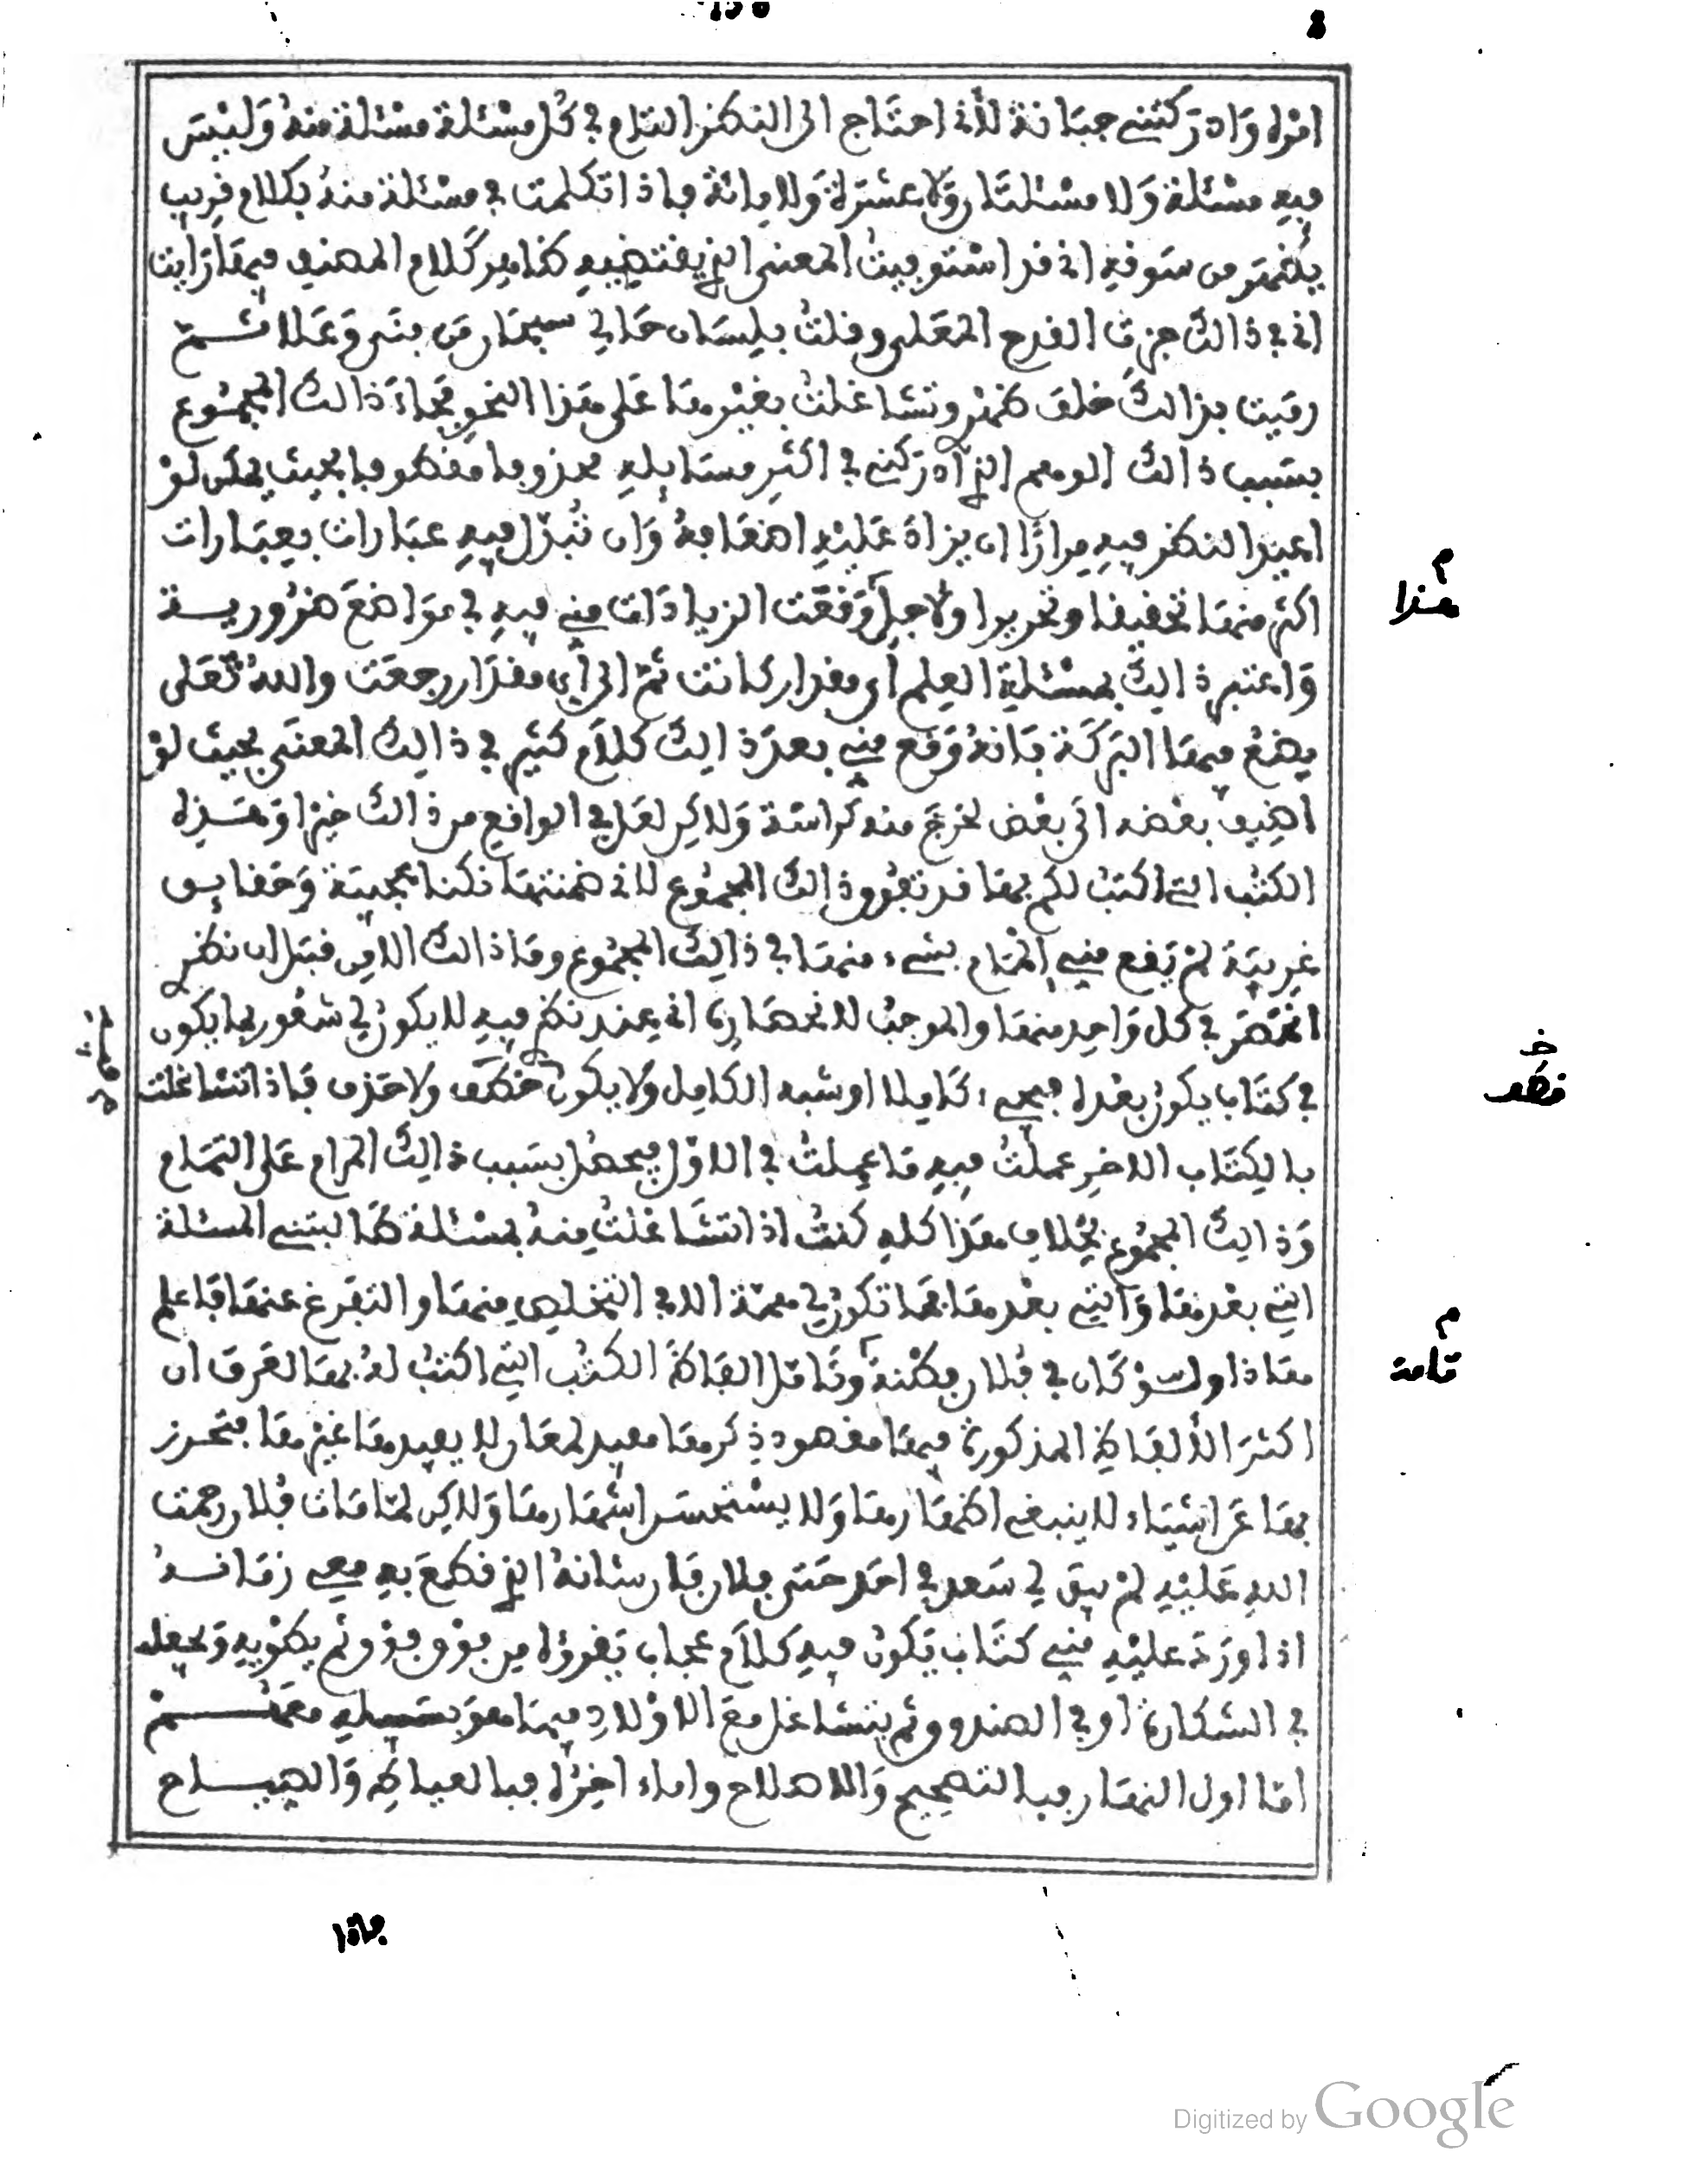 امره وادركتني جبانة لأني احتاج الى النظر التام في كل مسئلة مسئلة منه وليس
فيه مسئلة ولا مسئلتان ولا عشرة ولا مائة فاذا تكلمت في مسئلة منه بكلام قريب
اني قد استوفيت المعنى الذي يقتضيه ظاهر كلام المصنف فيها رايت
اني في ذالك جزت القدح المعلى وقلت بلسان حالي سبحان من بنى وعلا ثم
رميت بذالك خلف ظهري وتشاغلت بغيرها على هذا النحو فجاء ذالك المجموع
بسبب ذالك الوهم الذي ادركني في اكثر مسائله محزوما منظوما بحيث يمكن لو
اعيد النظر فيه مرارا ان يزاد عليه اضعافه وان تبدل فيه عبارات بعبارات
اكثر منها تحقيقا وتحريرا ولاجل وقعت الزيادات مني فيه في مواضع ضرورية
واعتبر ذالك بمسئلة العلم اي مقدار كانت ثم الى اي مقدار رجعت والله تعلى
يضع فيها البركة فانه وقع مني بعد ذالك كلام كثير في ذالك المعنى بحيث لو
اضيف بعضه الى بعض لخرج منه كراسة ولاكن لعل في الواقع من ذالك خيرا وهذه
الكتب التي اكتب لكم بها قد تفوق ذالك المجموع لاني ضمنتها نكتا عجيبة وحقايق
غريبة لم يقع مني المام بشيء منها في ذالك المجموع وما ذالك الا من قبل ان نظري
انحصر في كل واحد منها والموجب لانحصاره اني عند نظري فيه لا يكون لي شعور بما يكون
في كتاب يكون بعده فيجيء كاملا او شبه الكامل ولا يكون خطف ولا حذف فاذا تشاغلت
بالكتاب الاخر عملت فيه ما عملت في الاول فيحصل بسبب ذالك المرام على التمام
وذالك المجموع بخلاف هذا كله كنت اذا تشاغلت منه بمسئلة طالبتني المسئلة
التي بعدها والتي بعدها فما تكون لي همة الا في التخليص منها والتفرغ عنها فاعلم
هاذا ولو كان في فلان فطنة وتامل الفاظ الكتب التي اكتب له بها لعرف ان
اكثر الألفاظ المذكورة فيها مقصود ذكرها مفيد لمعان لا يفيدها غيرها متحرز
بها عن اشياء لا ينبغي اظهارها ولا يستحسن اشهارها ولاكن لما مات فلان رحمت
الله عليه لم يبق لي سعد في احد حتى فلان فان شانه الذي قطع به معي زمانه
اذا ورد عليه مني كتاب يكون فيه كلام عجاب يقرؤه من فوق فوق ثم يطويه ويجعله
في الشكارة او في الصندوق ثم يتشاغل مع الاولاد فيما هو بسبيله معهم
اما اول النهار فبالتصحيح والاصلاح واما ء اخره فبالعياط والصياح
م
هذا
خ
قطعه
م
تامة
فاذا